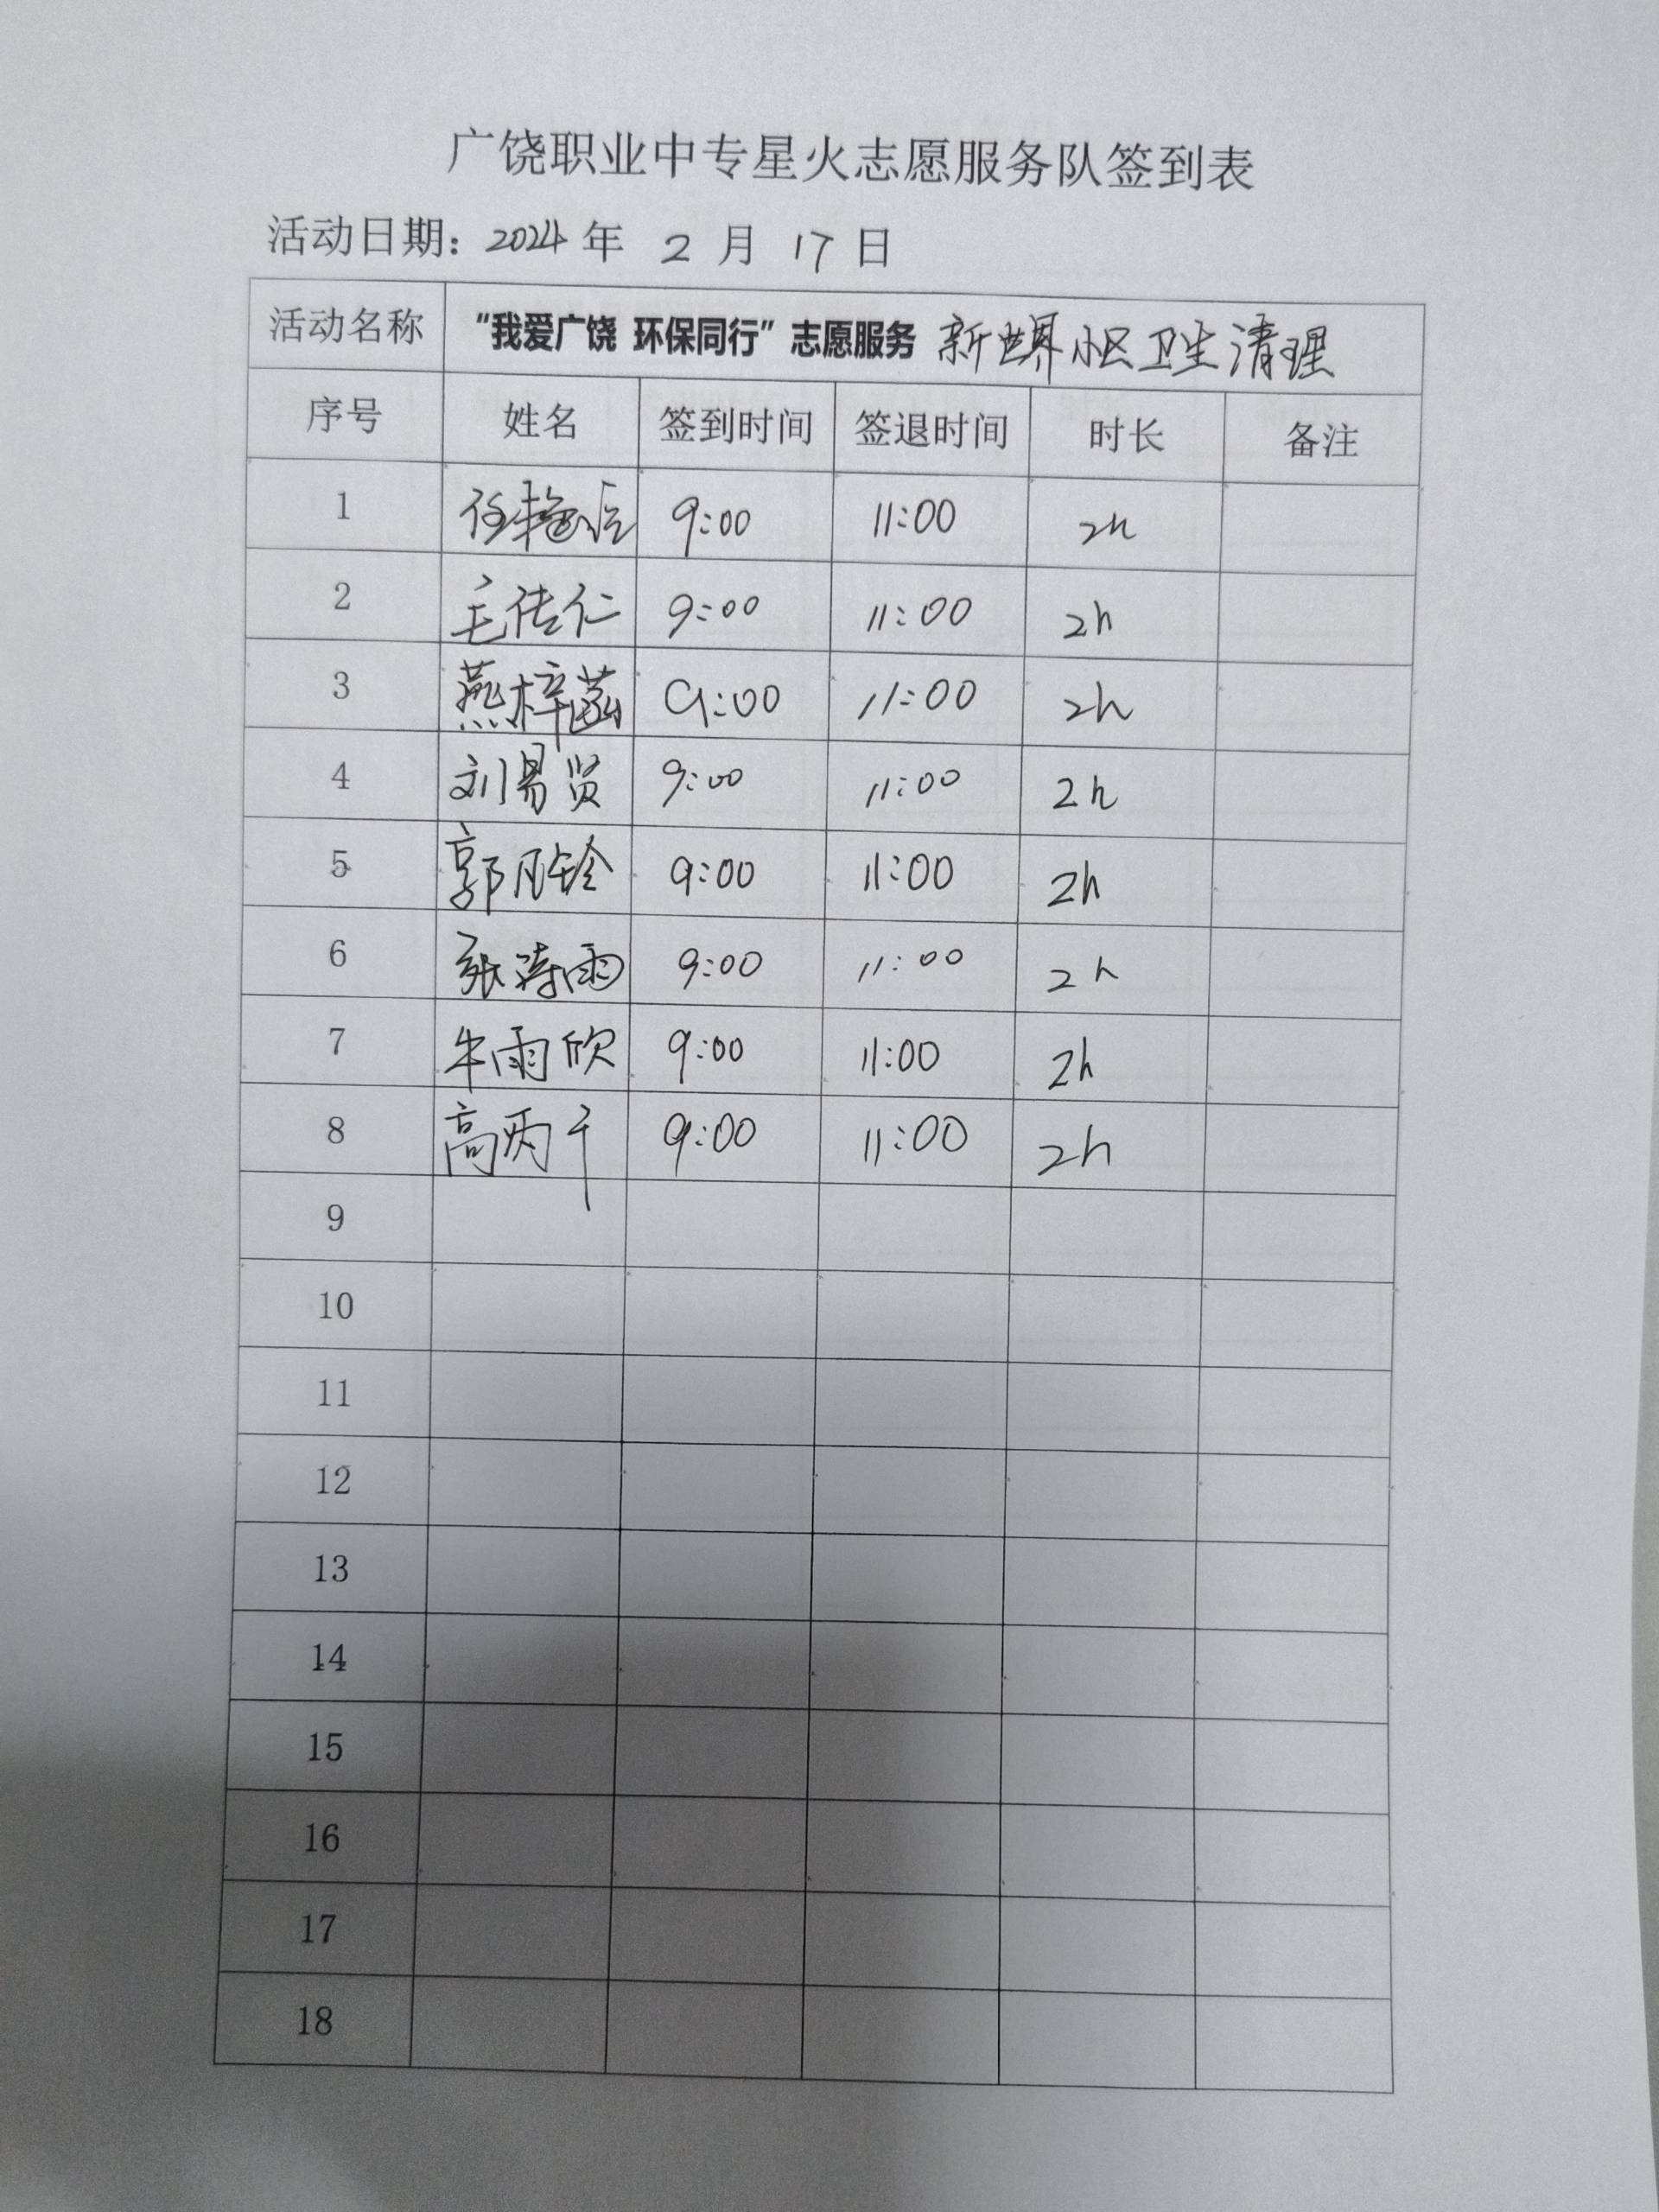 广饶职业中专星火志愿服务队签到表
活动日期：2024年 2 月 17 日
活动名称 “我爱广饶 环保同行”志愿服务 新世界小区卫生清理
序号 姓名 签到时间 签退时间 时长 备注
1 任艳 9:00 11:00 2h
2 毛传仁 9:00 11:00 2h
3 燕梓菡 9:00 11:00 2h
4 刘易贤 9:00 11:00 2h
5 郭凡铃 9:00 11:00 2h
6 张涛雨 9:00 11:00 2h
7 牛雨欣 9:00 11:00 2h
8 高丙千 9:00 11:00 2h
9
10
11
12
13
14
15
16
17
18